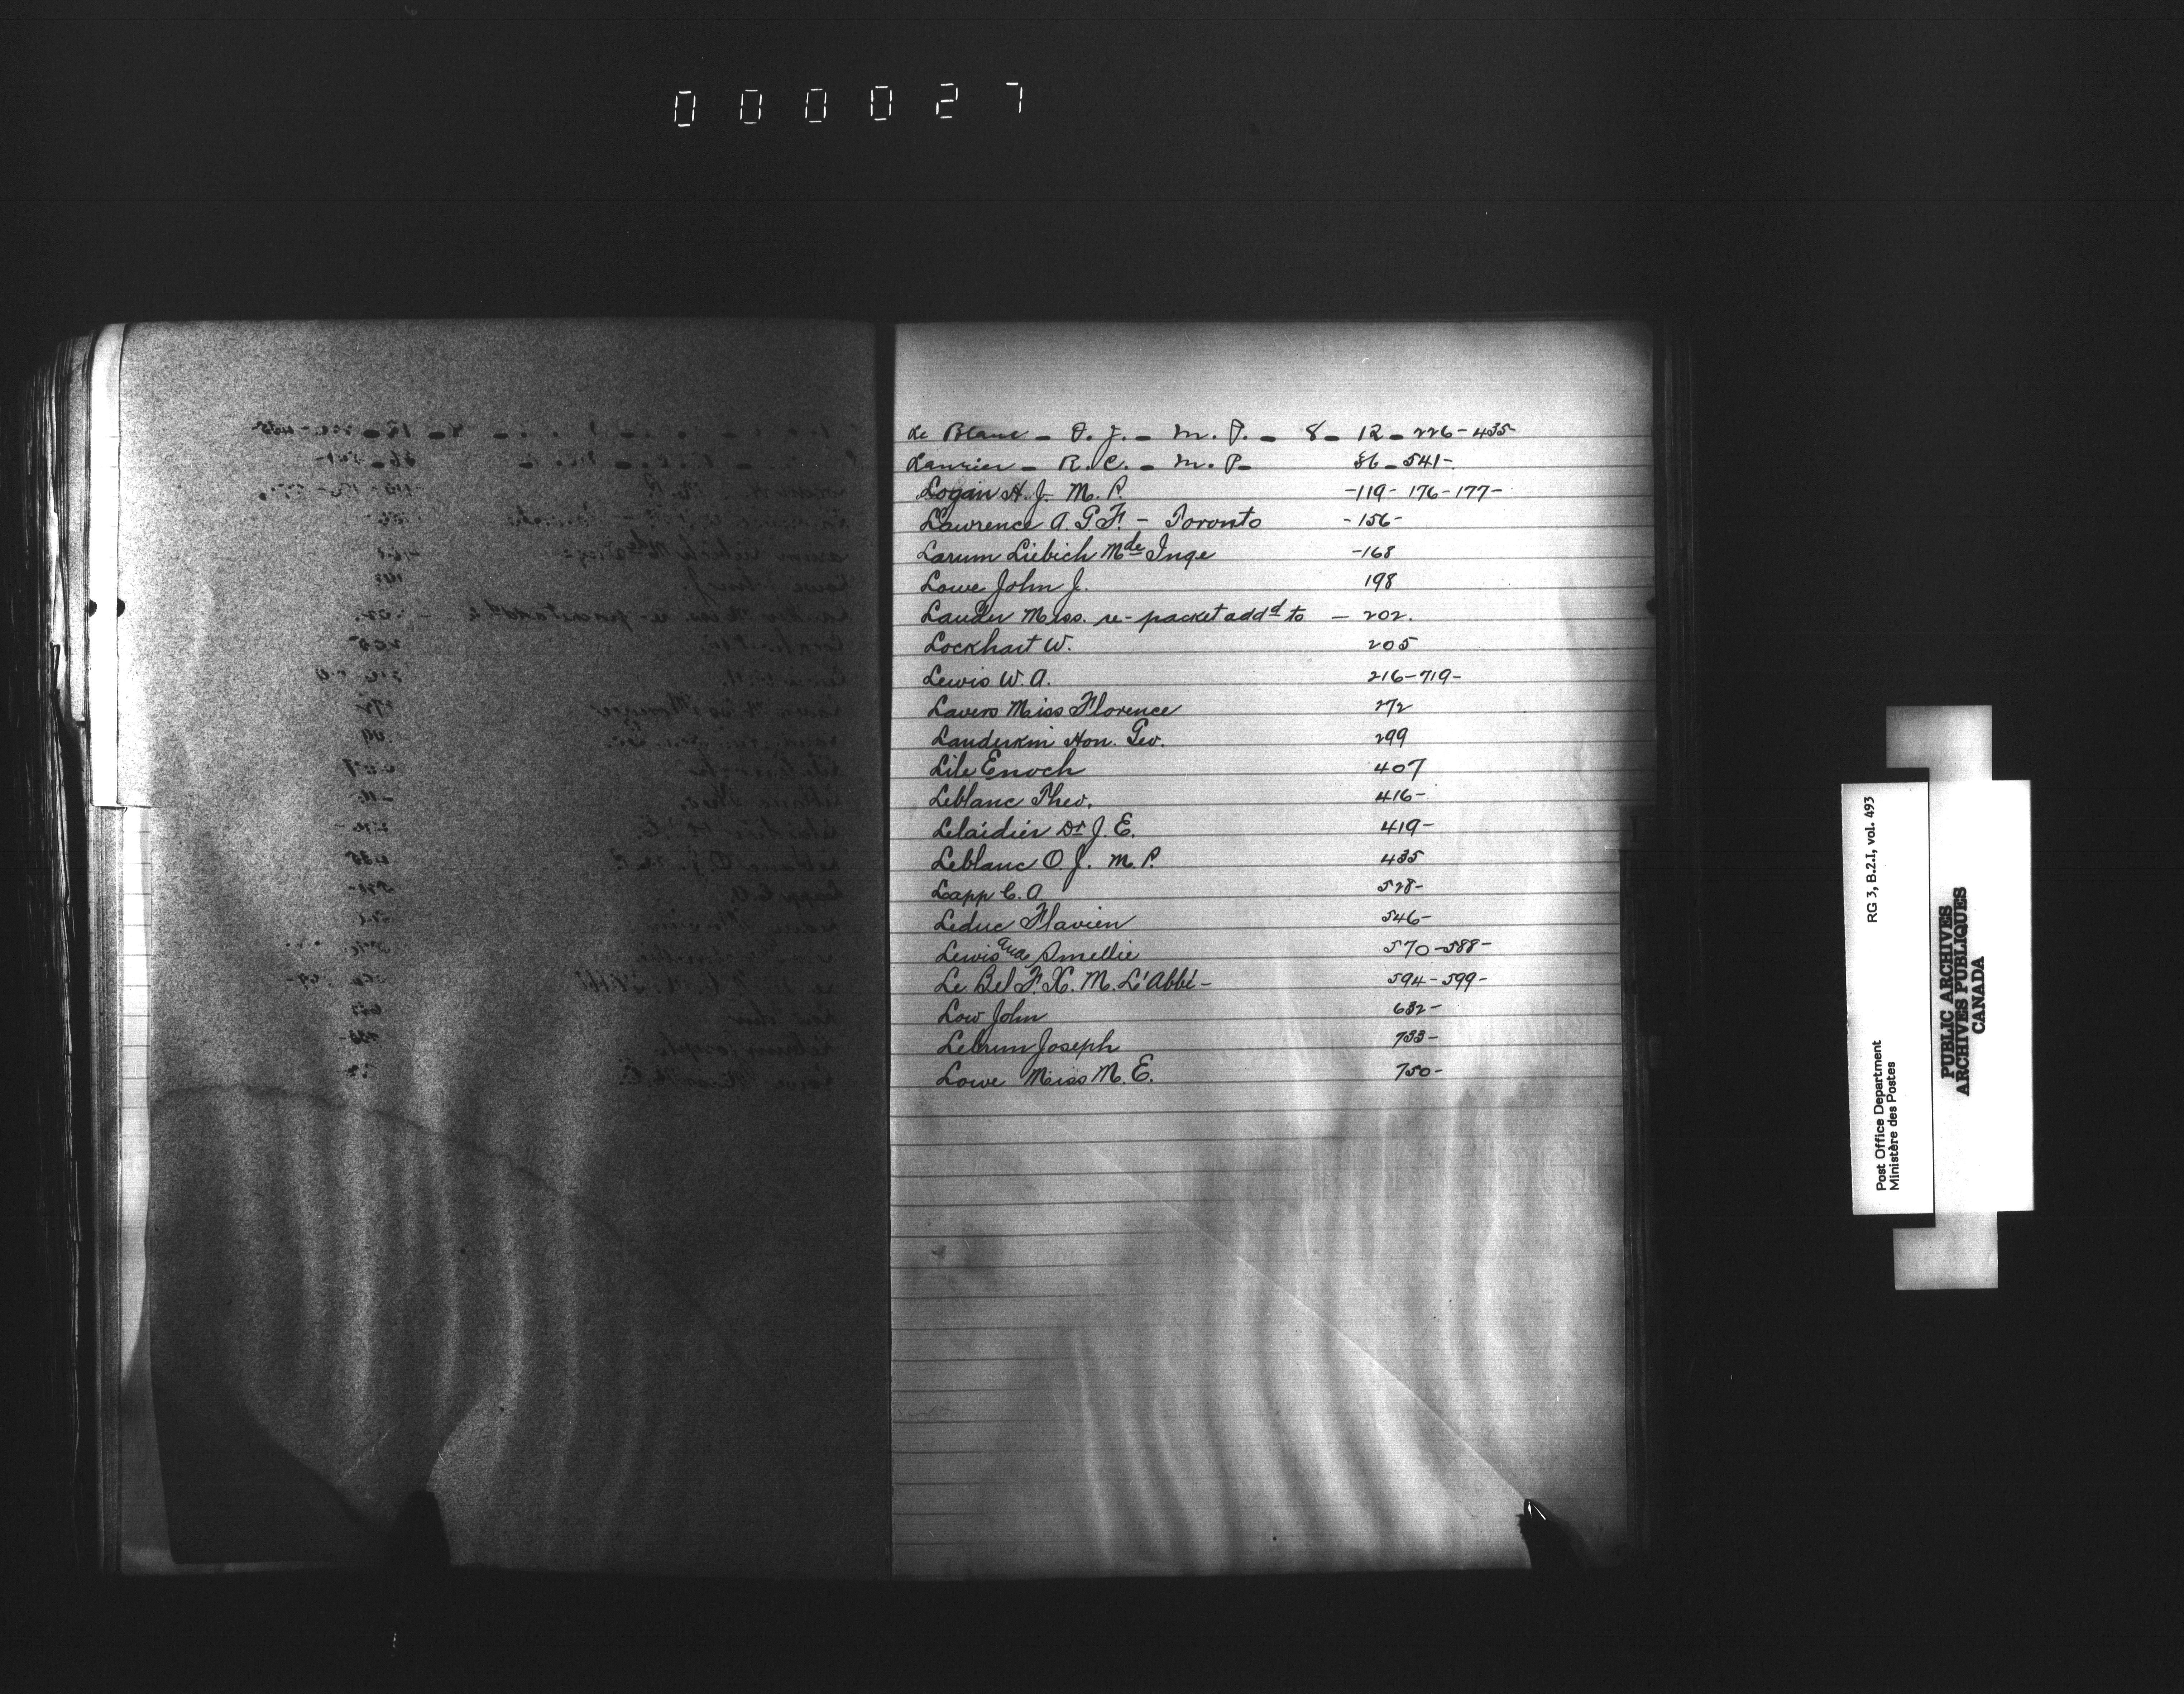 000027
Le Blanc - O. J. - M. P. - 8 - 12 - 226 - 435
Laurier - R. C. - M. P - 36 - 541 -
Logan H. J. M. P. - 119 - 176 - 177 -
Lawrence A. G. F. - Toronto - 156 -
Larum Liebich Mde Inge - 168
Lowe John J. 198
Lauder Miss. re - packet addd to - 202.
Lockhart W. 205
Lewis W. A. 216 - 719 -
Lavers Miss Florence 272
Landerkin Hon. Geo. 299
Lile Enoch 407
Leblanc Theo. 416 -
Dr J. E. 419 -
Leblanc O. J. M. P. 435
Lapp C. A 528 -
Leduc Flavien 546 -
Lewis and Smellie 570 - 588 -
Le Bel F. X. M. L'Abbé - 594 - 599 -
Low John 632 -
Lebrun Joseph 733 -
Lowe Miss M. E. 750 -
Post Office Department RG 3, B.2.I, vol. 493
Ministère des Postes
PUBLIC ARCHIVES
ARCHIVES PUBLIQUES
CANADA